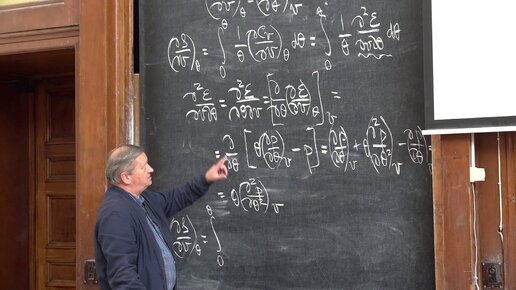 (∂ℰ/∂v)_θ
(∂S/∂v)_θ = ∫_0^θ 1/θ (∂C_v/∂v)_θ dθ = ∫_0^θ 1/θ ∂²ℰ/∂v∂θ dθ
∂²ℰ/∂v∂θ = ∂²ℰ/∂θ∂v = [∂/∂θ (∂ℰ/∂v)_θ]_v =
= ∂/∂θ [θ(∂p/∂θ)_v − p] = (∂p/∂θ)_v + θ(∂²p/∂θ²)_v − (∂p/∂
= θ(∂²p/∂θ²)_v
(∂S/∂v)_θ = ∫_0^θ